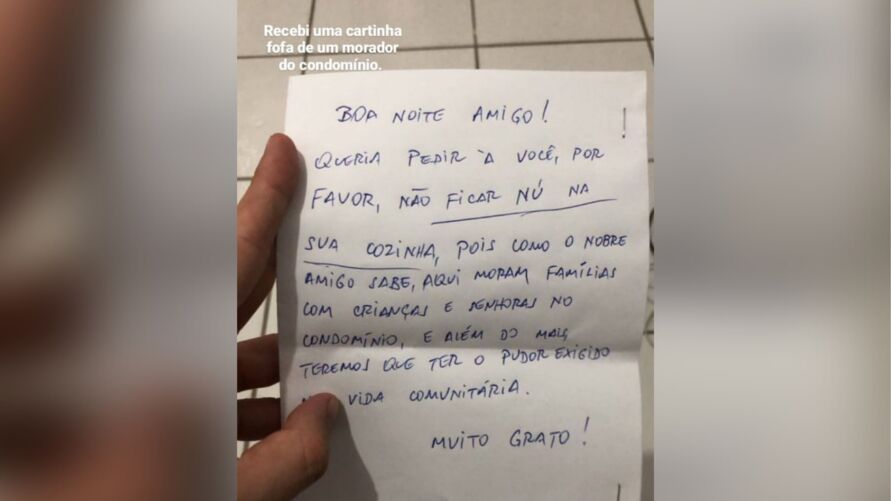 Recebi uma cartinha
fofa de um morador
do condomínio.
BOA NOITE AMIGO!
QUERIA PEDIR À VOCÊ, POR
FAVOR, NÃO FICAR NÚ NA
SUA COZINHA, POIS COMO O NOBRE
AMIGO SABE, AQUI MORAM FAMÍLIAS
COM CRIANÇAS E SENHORAS NO
CONDOMÍNIO, E ALÉM DO MAIS,
TEREMOS QUE TER O PUDOR EXIGIDO
VIDA COMUNITÁRIA.
MUITO GRATO!